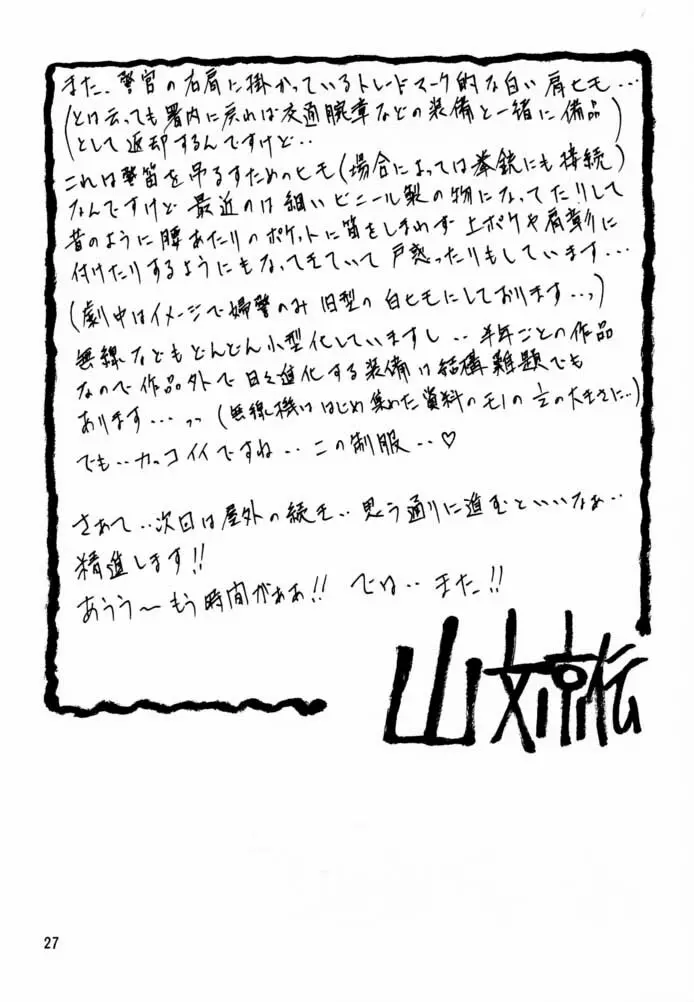 また、警官の右肩に掛かっているトレードマーク的な白い肩ヒモ…
(とは云っても署内に戻れば交通腕章などの装備と一緒に備品
として返却するんですけど…)
これは警笛を吊るすためのヒモ(場合によっては拳銃にも接続)
なんですけど最近のは細いビニール製の物になってたりして
昔のように腰あたりのポケットに笛をしまわず上ポケや肩章に
付けたりするようにもなってきていて戸惑ったりもしています…
(劇中はイメージで婦警のみ旧型の白ヒモにしております…っ)
無線などもどんどん小型化していますし‥半年ごとの作品
なので作品外で日々進化する装備は結構難題でも
あります…っっ(無線機ははじめ集めた資料のモノの½の大きさに…)
でも‥カッコイイですね‥この制服‥♡
さあて‥次回は屋外の続き‥思う通りに進むといいなぁ‥
精進します!!
あううーもう時間がああ!! では‥また!!
山文京伝
27